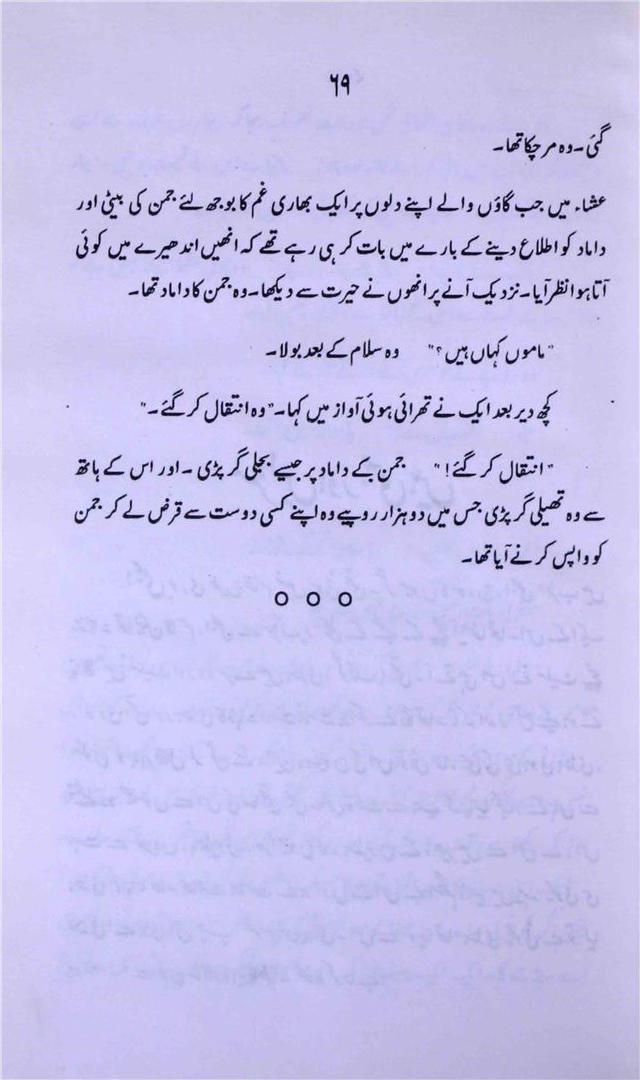 ۶۹
گئی۔ وہ مر چکا تھا۔
عشاء میں جب گاؤں والے اپنے دلوں پر ایک بھاری غم کا بوجھ لئے جمن کی بیٹی اور
داماد کو اطلاع دینے کے بارے میں بات کر ہی رہے تھے کہ انھیں اندھیرے میں کوئی
آتا ہوا نظر آیا۔ نزدیک آنے پر انھوں نے حیرت سے دیکھا۔ وہ جمن کا داماد تھا۔
"ماموں کہاں ہیں؟" وہ سلام کے بعد بولا۔
کچھ دیر بعد ایک نے تھرائی ہوئی آواز میں کہا۔ "وہ انتقال کر گئے۔"
"انتقال کر گئے!" جمن کے داماد پر جیسے بجلی گر پڑی۔ اور اس کے ہاتھ
سے وہ تھیلی گر پڑی جس میں دو ہزار روپیے وہ اپنے کسی دوست سے قرض لے کر جمن
کو واپس کرنے آیا تھا۔
○ ○ ○